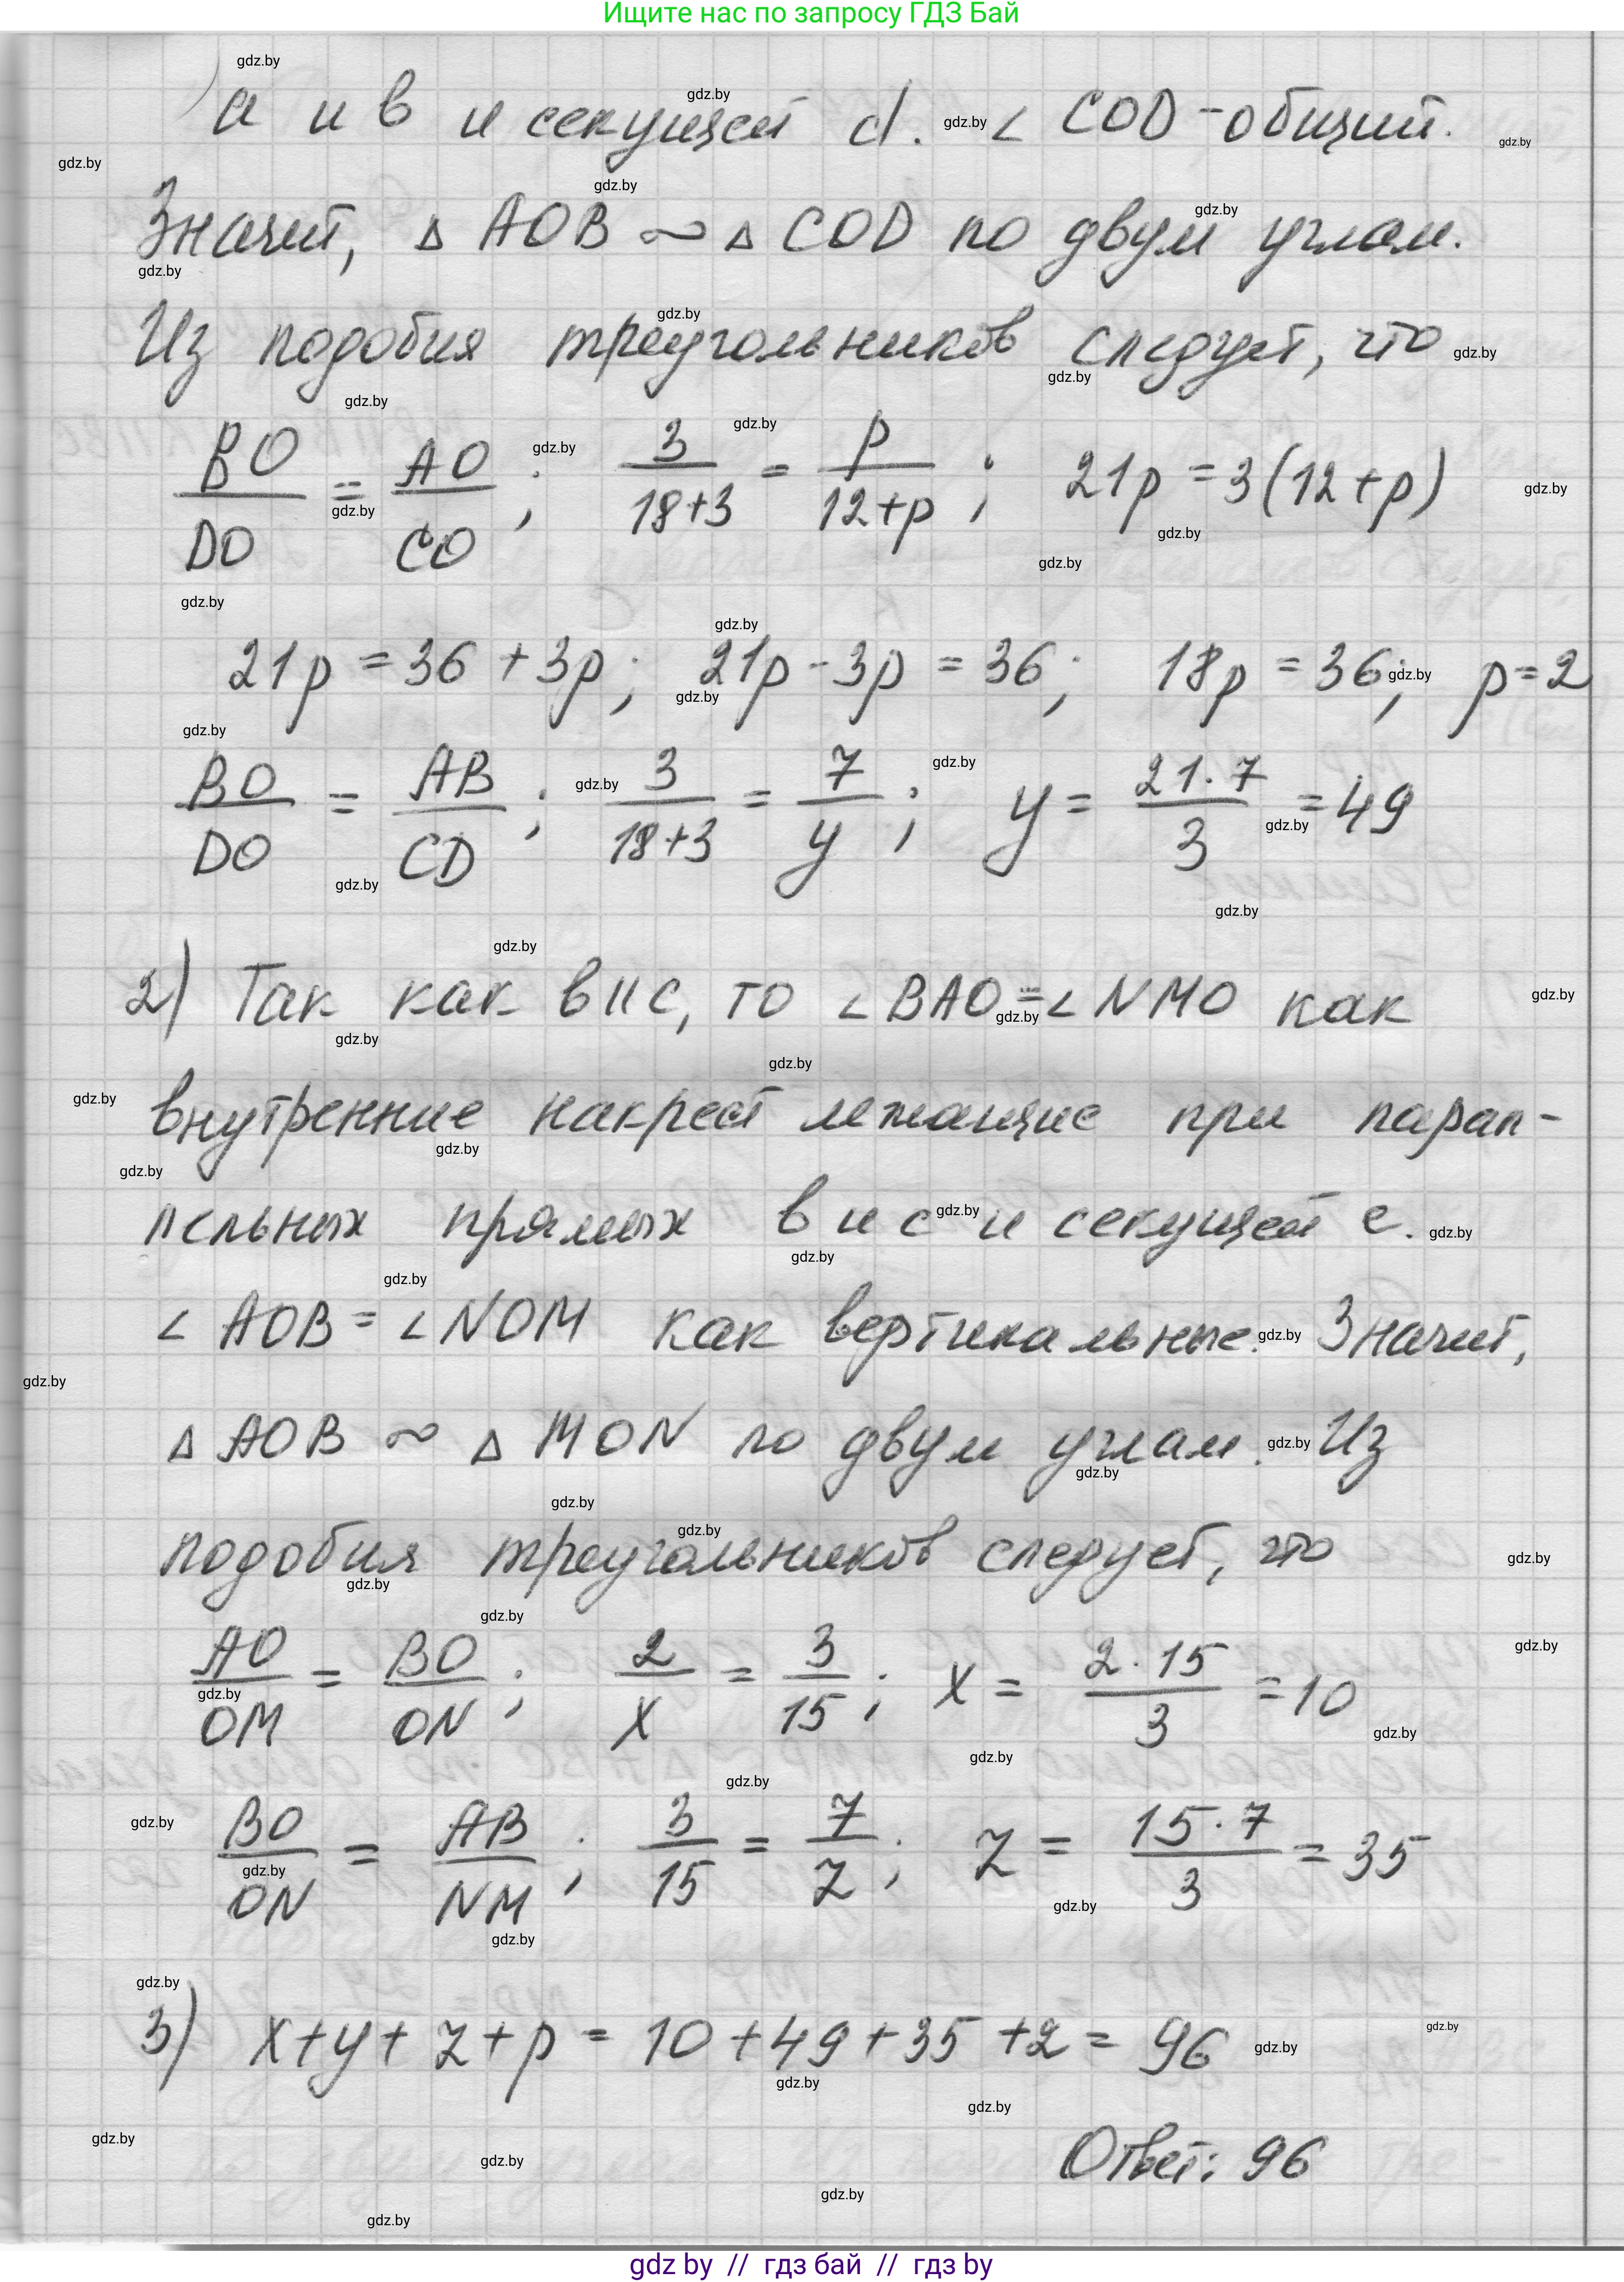 Ищите нас по запросу ГДЗ Бай
a и b и секущей d. ∠ COD - общий.
Значит, Δ AOB ∾ Δ COD по двум углам.
Из подобия треугольников следует, что
BO/DO = AO/CO ; 3/(18+3) = p/(12+p) ; 21p = 3(12+p)
21p = 36 + 3p ; 21p - 3p = 36 ; 18p = 36 ; p = 2
BO/DO = AB/CD ; 3/(18+3) = 7/y ; y = (21·7)/3 = 49
2) Так как b || c, то ∠ BAO = ∠ NMO как
внутренние накрест лежащие при парал-
лельных прямых b и c и секущей e.
∠ AOB = ∠ NOM как вертикальные. Значит,
Δ AOB ∾ Δ MON по двум углам. Из
подобия треугольников следует, что
AO/OM = BO/ON ; 2/x = 3/15 ; x = (2·15)/3 = 10
BO/ON = AB/NM ; 3/15 = 7/z ; z = (15·7)/3 = 35
3) x + y + z + p = 10 + 49 + 35 + 2 = 96
Ответ: 96
gdz by // гдз бай // гдз by